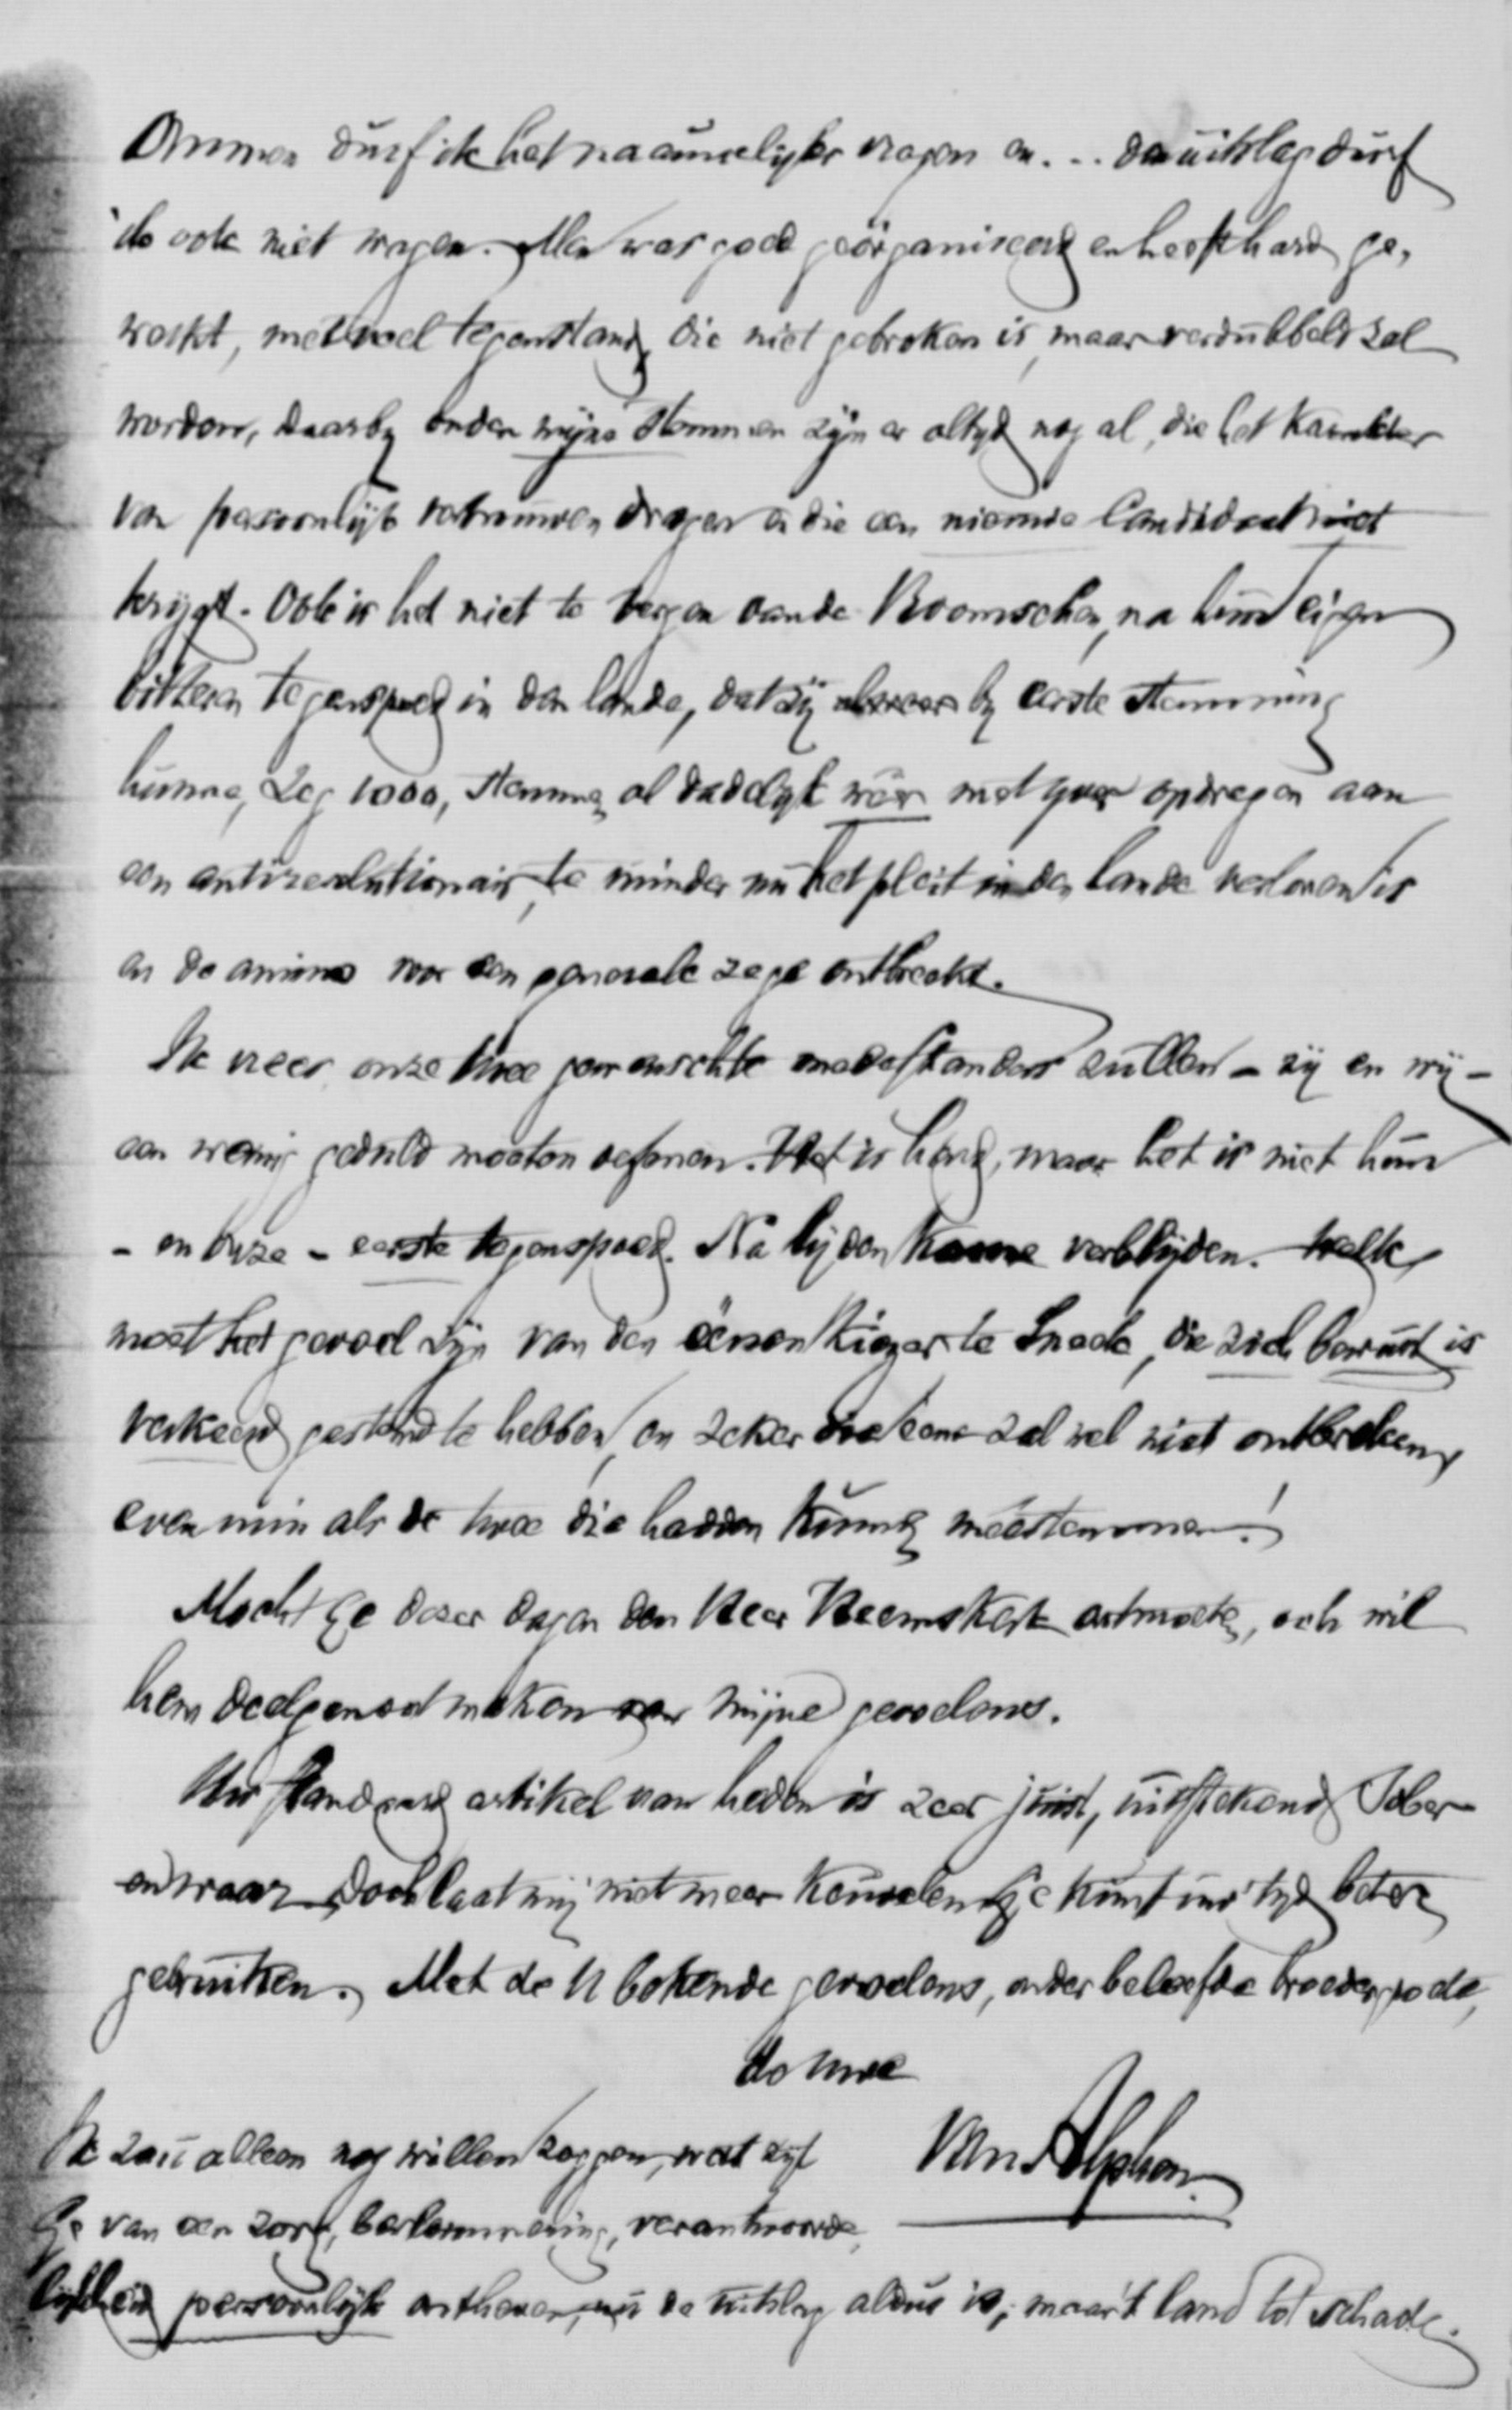 Ommen durf ik het naauwelijks vragen en... de uitslag durf
ik ook niet wagen. Men was goed georganiseerd en heeft hard ge-
werkt, met veel tegenstand, die niet gebroken is, maar verdubbeld zal
worden, daarby onder mijne stemmen zijn er altyd nog al, die het karakter
van persoonlijk vertrouwen dragen en die een nieuwe Candidaat niet
krijgt. Ook is het niet te vergen van de Roomschen, na hun eigen
bitteren tegenspoed in den lande, dat zij alweer by eerste stemming
hunne, zeg 1000, stemmen al dadelyk weer met yver opdragen aan
een antirevolutionair, te minder nu het pleit in den lande verloren is
en de animo voor een generale zege ontbreekt.
Ik vrees onze twee gewenschte medestanders zullen - zij en wij -
een weinig geduld moeten oefenen. Het is hard, maar het is niet hun
- en onze - eerste tegenspoed. Na lijden kome verblijden. Welk
moet het gevoel zijn van den éénen Kiezer te Sneek, die zich bewust is
verkeerd gestemd te hebben, en zeker die eene zal wel niet ontbreken,
evenmin als de twee die hadden kunnen meestemmen!
Mocht ge dezer dagen den Heer Heemskerk ontmoeten, och wil
hem deelgenoot maken van mijne gevoelens.
Uw Standaard artikel van heden is zeer juist, uitstekend, sober
en waar. Doch laat mij niet meer keuvelen. Ge kunt uw tyd beter
gebruiken. Met de U bekende gevoelens, onder beleefde broedergroete,
de Uwe
Van Alphen
Ik zou alleen nog willen zeggen, wat zyt
Ge van een zorg, belemmering, verantwoorde-
lijkheid persoonlijk ontheven, nu de uitslag aldus is; maar 't land tot schade.